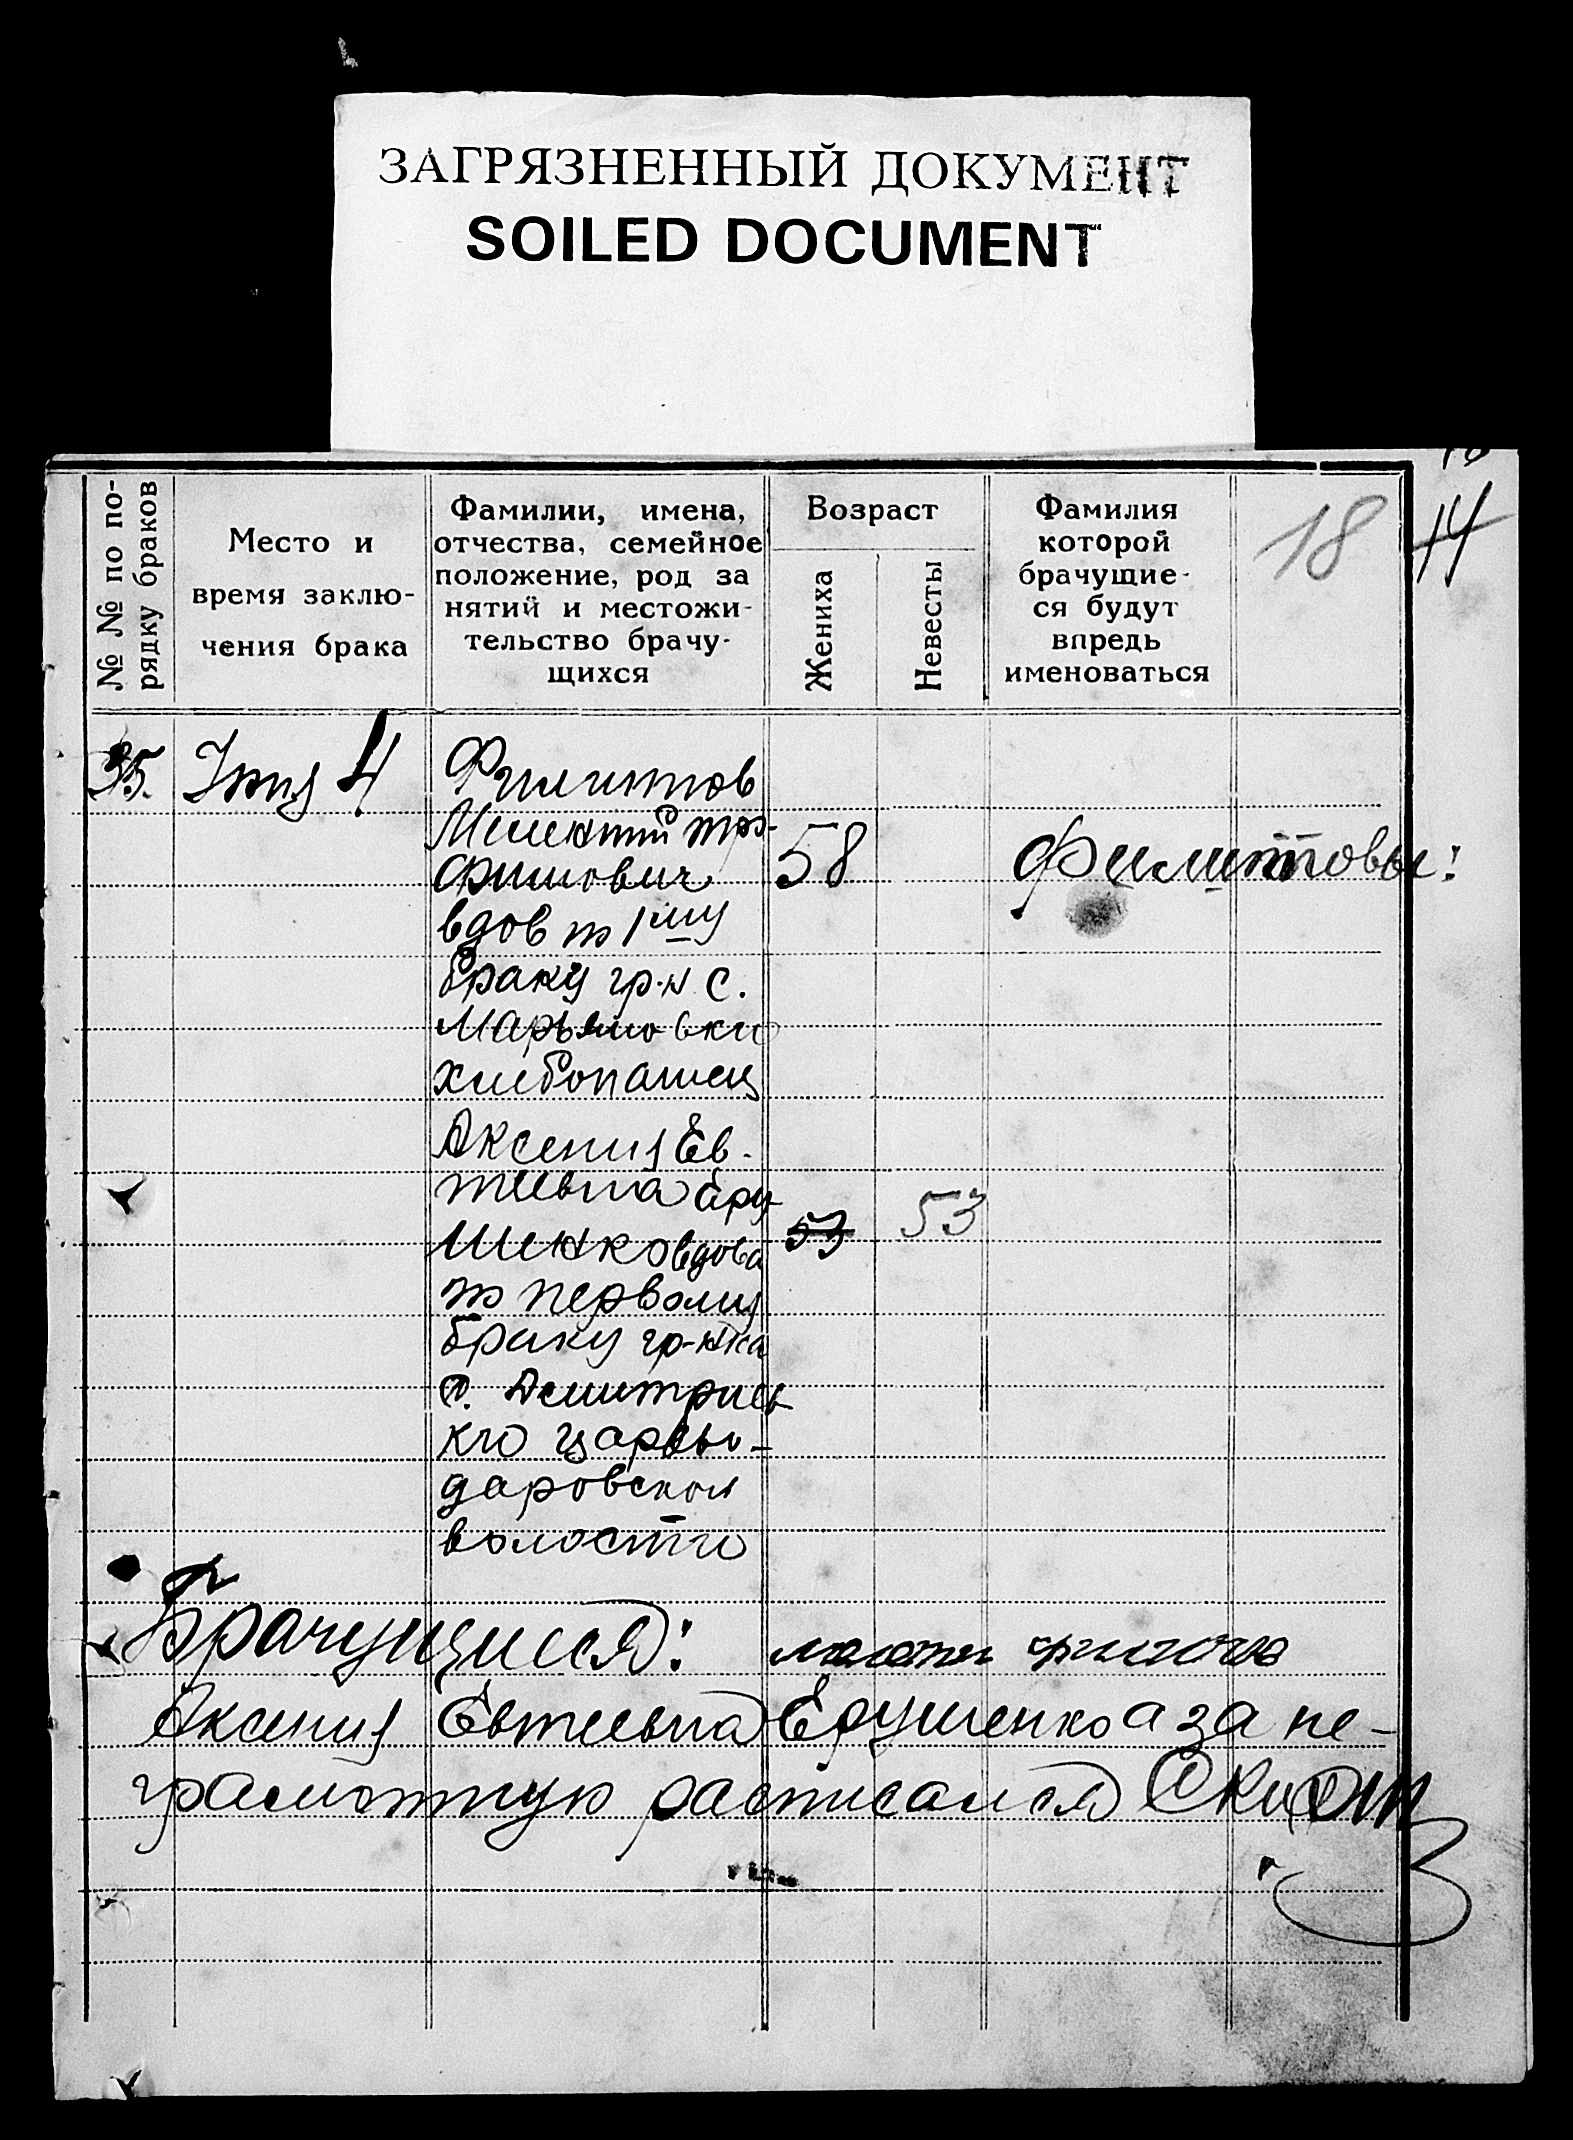 ЗАГРЯЗНЕННЫЙ ДОКУМЕНТ
SOILED DOCUMENT
18 14
№ № по по-
рядку браков
Место и
время заклю-
чения брака
Фамилии, имена,
отчества, семейное
положение, род за
нятий и местожи-
тельство брачу-
щихся
Возраст
Жениха
Невесты
Фамилия
которой
брачущие-
ся будут
впредь
именоваться
35. 4
Филиппов
тро-
фимович 58 Филипповы:
вдов по 1му
браку гр-н с.
Марьяновки
хлебопашец
Аксения Ев-
теевна Еру
шенко вдова 53 53
по первому
браку гр-нка
с. Дмитриев
ки царе
даровской
волости
Брачущиеся:
Аксения Евтеевна Ерушенко а за не-
грамотную расписался